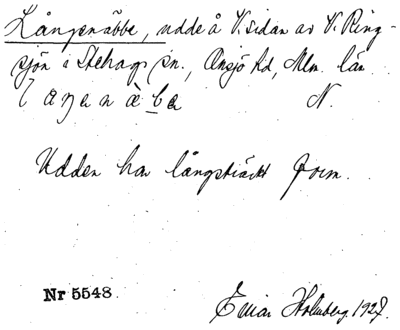 Långenäbbe, udde å V. sidan av V. Ring-
sjön i Stehags sn., Onsjö hd, Mlm. län
N.
Udden har långsträckt form.
Nr 5548
Einar Holmberg. 1927.